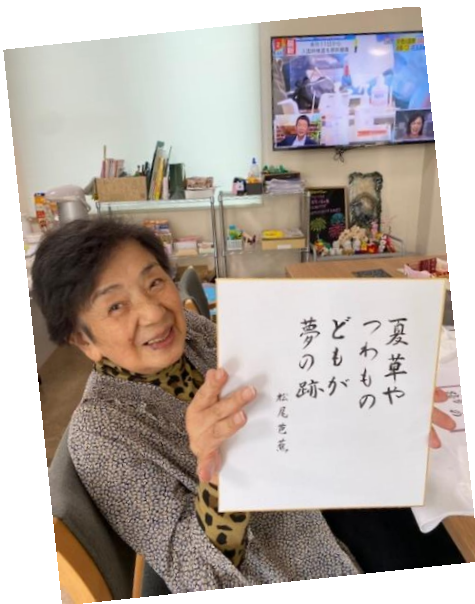 夏草や
つわもの
どもが
夢の跡
松尾芭蕉